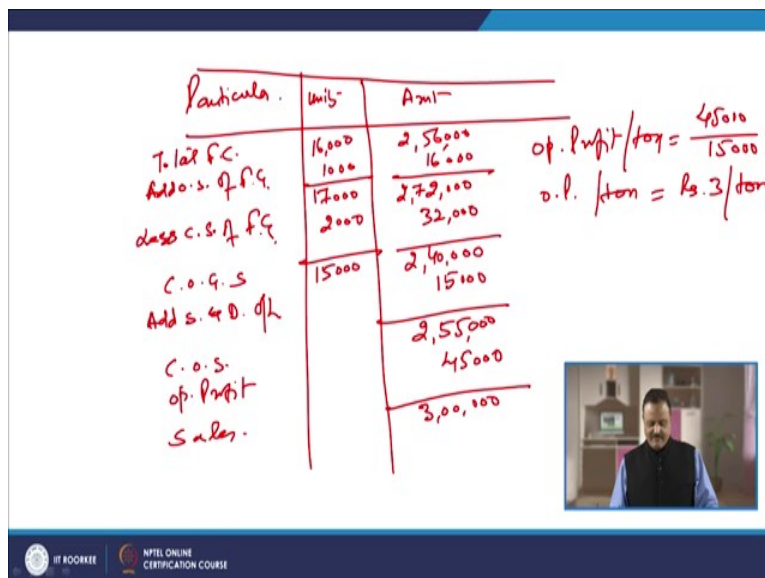 Particular. Units Amt
Total F.C. 16,000 2,56000
Add O.S. of F.G. 1000 16000
17000 2,72,000
Less C.S. of F.G. 2000 32,000
C.O.G.S 15000 2,40,000
Add S. & D. O/h 15000
2,55,000
C.O.S.
Op. Profit 45000
Sales. 3,00,000
Op. Profit/ton = 45010
15000
O.P. /ton = Rs. 3/ton
IIT ROORKEE
NPTEL ONLINE
CERTIFICATION COURSE